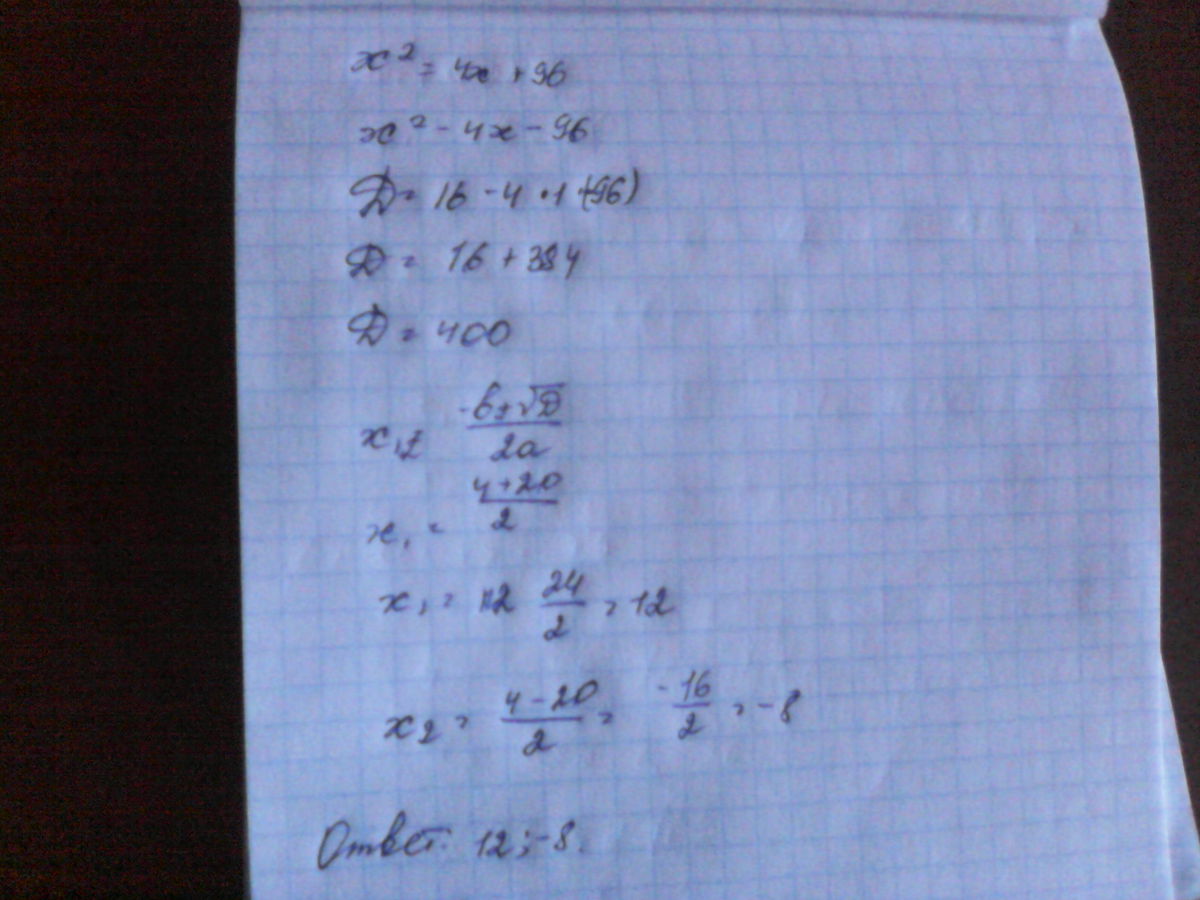 x² = 4x + 96
x² - 4x - 96
D = 16 - 4 · 1 (-96)
D = 16 + 384
D = 400
x₁,₂ = (-b ± √D)/(2a)
x₁ = (4 + 20)/2
x₁ = 12 24/2 = 12
x₂ = (4 - 20)/2 = -16/2 = -8
Ответ: 12; -8.